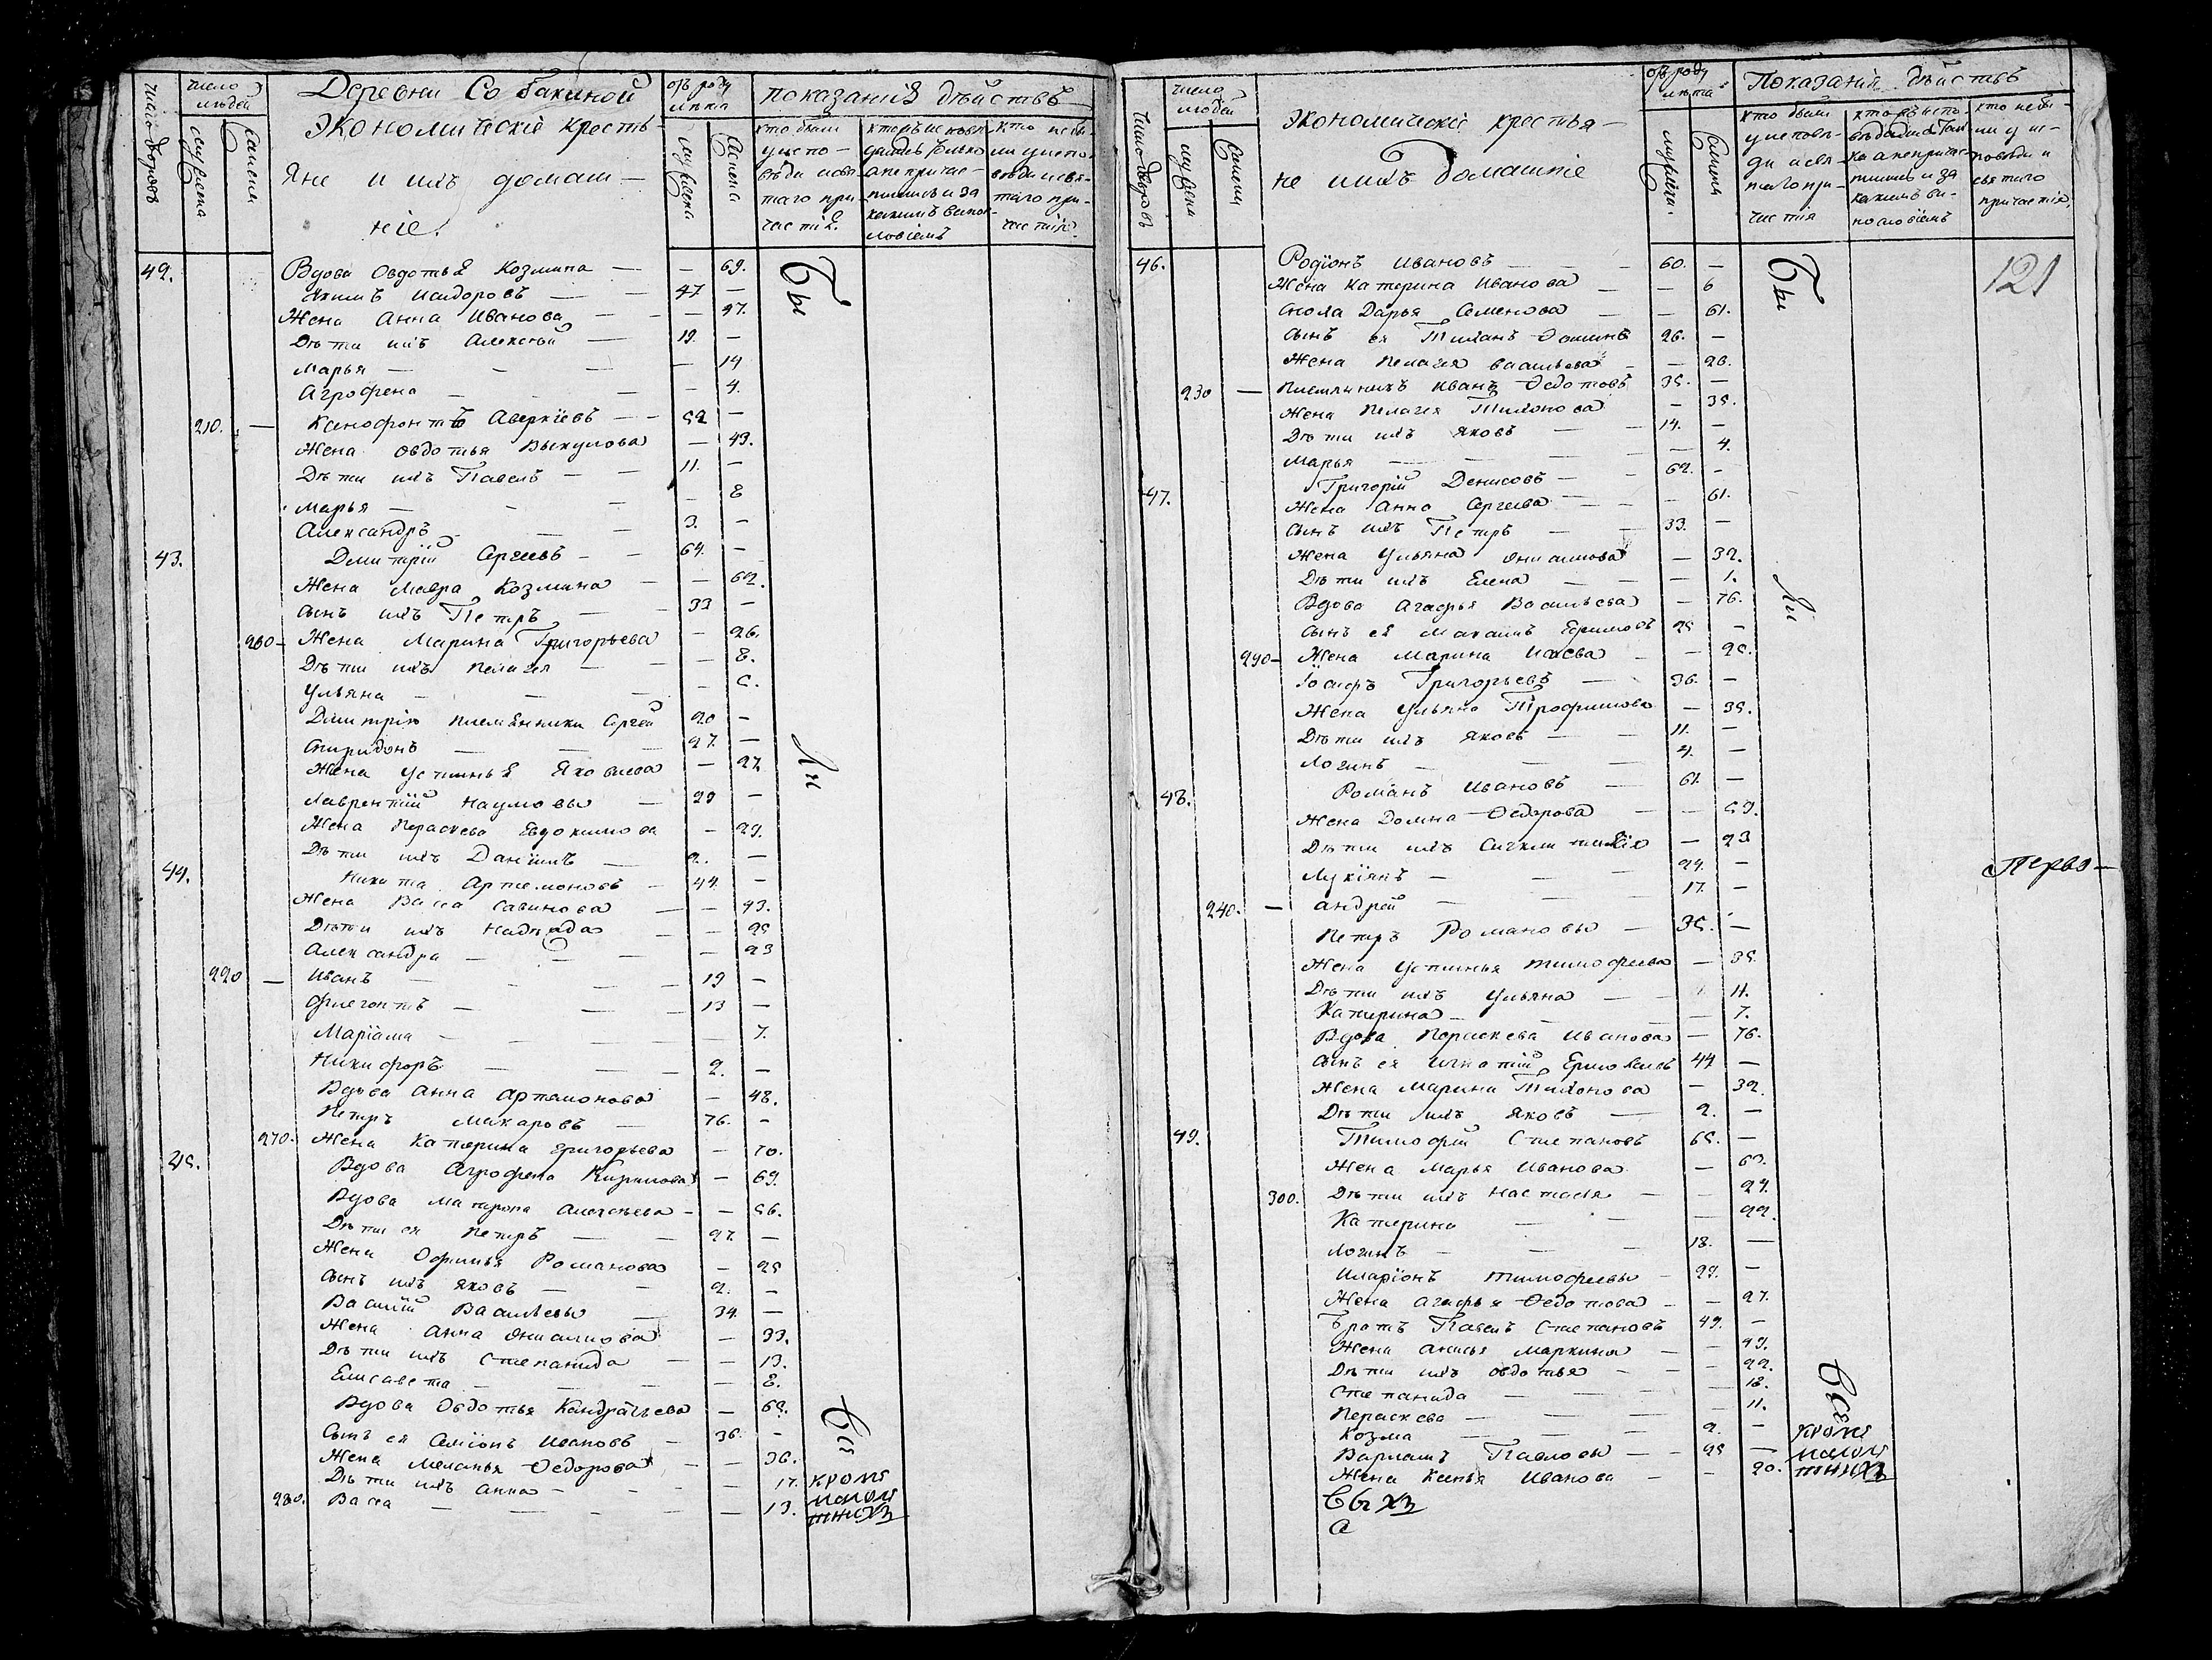 Деревни Собакиной
Экономическіе кресть-
яне и ихъ домаш-
ніе.
Число дворовъ
число людей
мужеска
женска
отъ роду лѣта
мужеска
женска
показанія дѣйствъ
кто были у исповѣди и святаго причастія.
кто исповѣдались только а не причастились и за какимъ винословіемъ
кто не были у исповѣди и святаго причастія
42. Вдова Овдотья Козмина — — 69. Бы
Якимъ Исидоровъ — 47 —
Жена Анна Иванова — — 47.
Дѣти ихъ Алексѣй — 19. —
Марья — — 14
Агрофена — — 4.
210. — Ксенофонтъ Аверкіевъ — 52 —
Жена Овдотья Викулова — 43.
Дѣти ихъ Павелъ — 11. —
Марья — — 8
Александръ — 3. —
43. Дмитрій Сергеевъ — 64. —
Жена Мавра Козмина — — 62.
Сынъ ихъ Петръ — 33 —
260 — Жена Марина Григорьева — 26.
Дѣти ихъ Пелагея — — 8.
Ульяна — — 5.
Дмитрію племянники Сергей 20 —
Спиридонъ — 27. —
Жена Устинья Яковлева — 27 ли
Лаврентій Наумовы — 29 —
Жена Параскева Евдокимова — 29.
Дѣти ихъ Даніилъ — 2. —
44. Никита Артемоновъ — 44. —
Жена Васса Савинова — — 43.
Дѣти ихъ Надежда — — 25
Александра — — 23
220 — Иванъ — 19 —
Флегонтъ — 13 —
Маріама — — 7.
Никифоръ — 2. —
Вдова Анна Артамонова — 48.
Петръ Макаровъ — 76. —
270. Жена Катерина Григорьева — 70.
45. Вдова Агрофена Кирилова — 69.
Вдова Матрона Алексѣева — — 56.
Дѣти ея Петръ — 27. —
Жена Офимья Романова — 25
Сынъ ихъ Яковъ — 2. —
Василій Васильевы — 34 —
Жена Анна Онисимова — 33.
Дѣти ихъ Степанида — — 13.
Елисавета — — 8.
Вдова Овдотья Кандратьева — 65. всѣ
Сынъ ея Семіонъ Ивановъ — 36. —
Жена Меланья Ѳедорова — — 36.
Дѣти ихъ Анна — — 17. кромѣ
280. Васса — — 13. малолѣтнихъ
Экономическіе крестья-
не и ихъ домашніе
Число дворовъ
число людей
мужеска
женска
отъ роду лѣта
мужеска
женска
Показанія дѣйствъ
кто были у исповѣди и святаго причастія
кто исповѣдались только а не причастились и за какимъ винословіемъ
кто не были у исповѣди и святаго причастія.
121
46. Родіонъ Ивановъ — 60. — Бы
Жена Катерина Иванова — — 6
Сноха Дарья Семенова — — 61.
Сынъ ея Тиханъ Ѳоминъ 26. —
Жена Пелагея Васильева — — 26.
230 — Племянникъ Иванъ Ѳедотовъ 35. —
Жена Пелагея Тихонова — 35.
Дѣти ихъ Яковъ — 14. —
Марья — — 4.
47. Григорій Денисовъ — 62. —
Жена Анна Сергеева — — 61.
Сынъ ихъ Петръ — 33. —
Жена Ульяна Онисимова — 32.
Дѣти ихъ Елена — — 1. ли
Вдова Агафья Васильева — 76.
Сынъ ея Максимъ Ефимовъ 25 —
290 — Жена Марина Исаева — — 25.
Іосифъ Григорьевъ — 36. —
Жена Ульяна Трофимова — 35.
Дѣти ихъ Яковъ — 11. —
Логинъ — 4. —
48. Романъ Ивановъ — 61. —
Жена Домна Ѳедорова — — 59.
Дѣти ихъ Сигклитикія — 23
Лукіянъ — 24. —
Перво-
240. — Андрей — 17. —
Петръ Романовы — 35. —
Жена Устинья Тимофеева — 35.
Дѣти ихъ Ульяна — 11.
Катерина — — 7.
Вдова Параскева Иванова — 76.
Сынъ ея Игнатій Ермолаевъ 44 —
Жена Марина Тихонова — 32.
Дѣти ихъ Яковъ — 2. —
49. Тимофей Степановъ 65. —
Жена Марья Иванова — 63.
300. Дѣти ихъ Настасья — — 24.
Катерина — — 22.
Логинъ — 18. —
Иларіонъ Тимофеевы — 27. —
Жена Агафья Ѳедотова — — 27.
Братъ Павелъ Степановъ 49. —
Жена Анисья Маркина — — 49.
Дѣти ихъ Овдотья — — 22. всѣ
Степанида — — 18.
Параскева — — 11.
Козма — 2. — кромѣ
Варламъ Павловы — 25 — малолѣ
Жена Ксенья Иванова — — 20. тнихъ